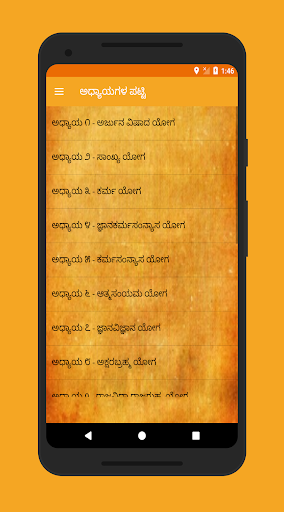 1:46
ಅಧ್ಯಾಯಗಳ ಪಟ್ಟಿ
ಅಧ್ಯಾಯ ೧ - ಅರ್ಜುನ ವಿಷಾದ ಯೋಗ
ಅಧ್ಯಾಯ ೨ - ಸಾಂಖ್ಯ ಯೋಗ
ಅಧ್ಯಾಯ ೩ - ಕರ್ಮ ಯೋಗ
ಅಧ್ಯಾಯ ೪ - ಜ್ಞಾನಕರ್ಮಸಂನ್ಯಾಸ ಯೋಗ
ಅಧ್ಯಾಯ ೫ - ಕರ್ಮಸಂನ್ಯಾಸ ಯೋಗ
ಅಧ್ಯಾಯ ೬ - ಆತ್ಮಸಂಯಮ ಯೋಗ
ಅಧ್ಯಾಯ ೭ - ಜ್ಞಾನವಿಜ್ಞಾನ ಯೋಗ
ಅಧ್ಯಾಯ ೮ - ಅಕ್ಷರಬ್ರಹ್ಮ ಯೋಗ
ಅಧ್ಯಾಯ ೯ - ರಾಜವಿದ್ಯಾ ರಾಜಗುಹ್ಯ ಯೋಗ